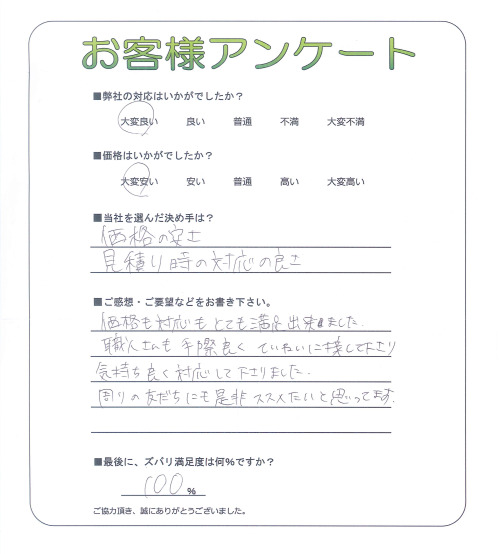 お客様アンケート
■弊社の対応はいかがでしたか？
大変良い 良い 普通 不満 大変不満
■価格はいかがでしたか？
大変安い 安い 普通 高い 大変高い
■当社を選んだ決め手は？
価格の安さ
見積り時の対応の良さ
■ご感想・ご要望などをお書き下さい。
価格も対応もとても満足出来ました。
職人さんも手際良くていねいに接して下さり
気持ち良く対応して下さりました。
周りの友だちにも是非ススメたいと思ってます。
■最後に、ズバリ満足度は何％ですか？
100 %
ご協力頂き、誠にありがとうございました。